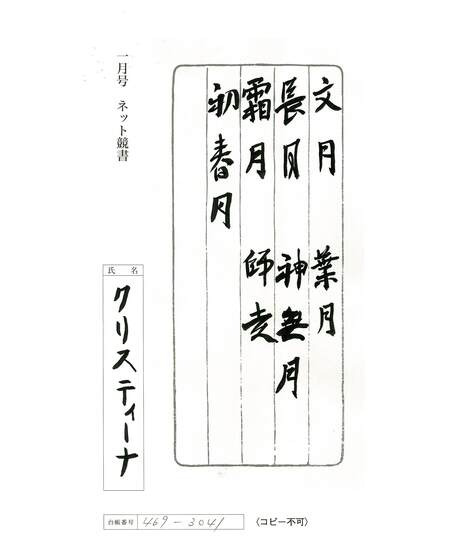 文月　葉月
長月　神無月
霜月　師走
初春月
一月号　ネット競書
氏名
クリスティーナ
台帳番号 469-3041
〈コピー不可〉